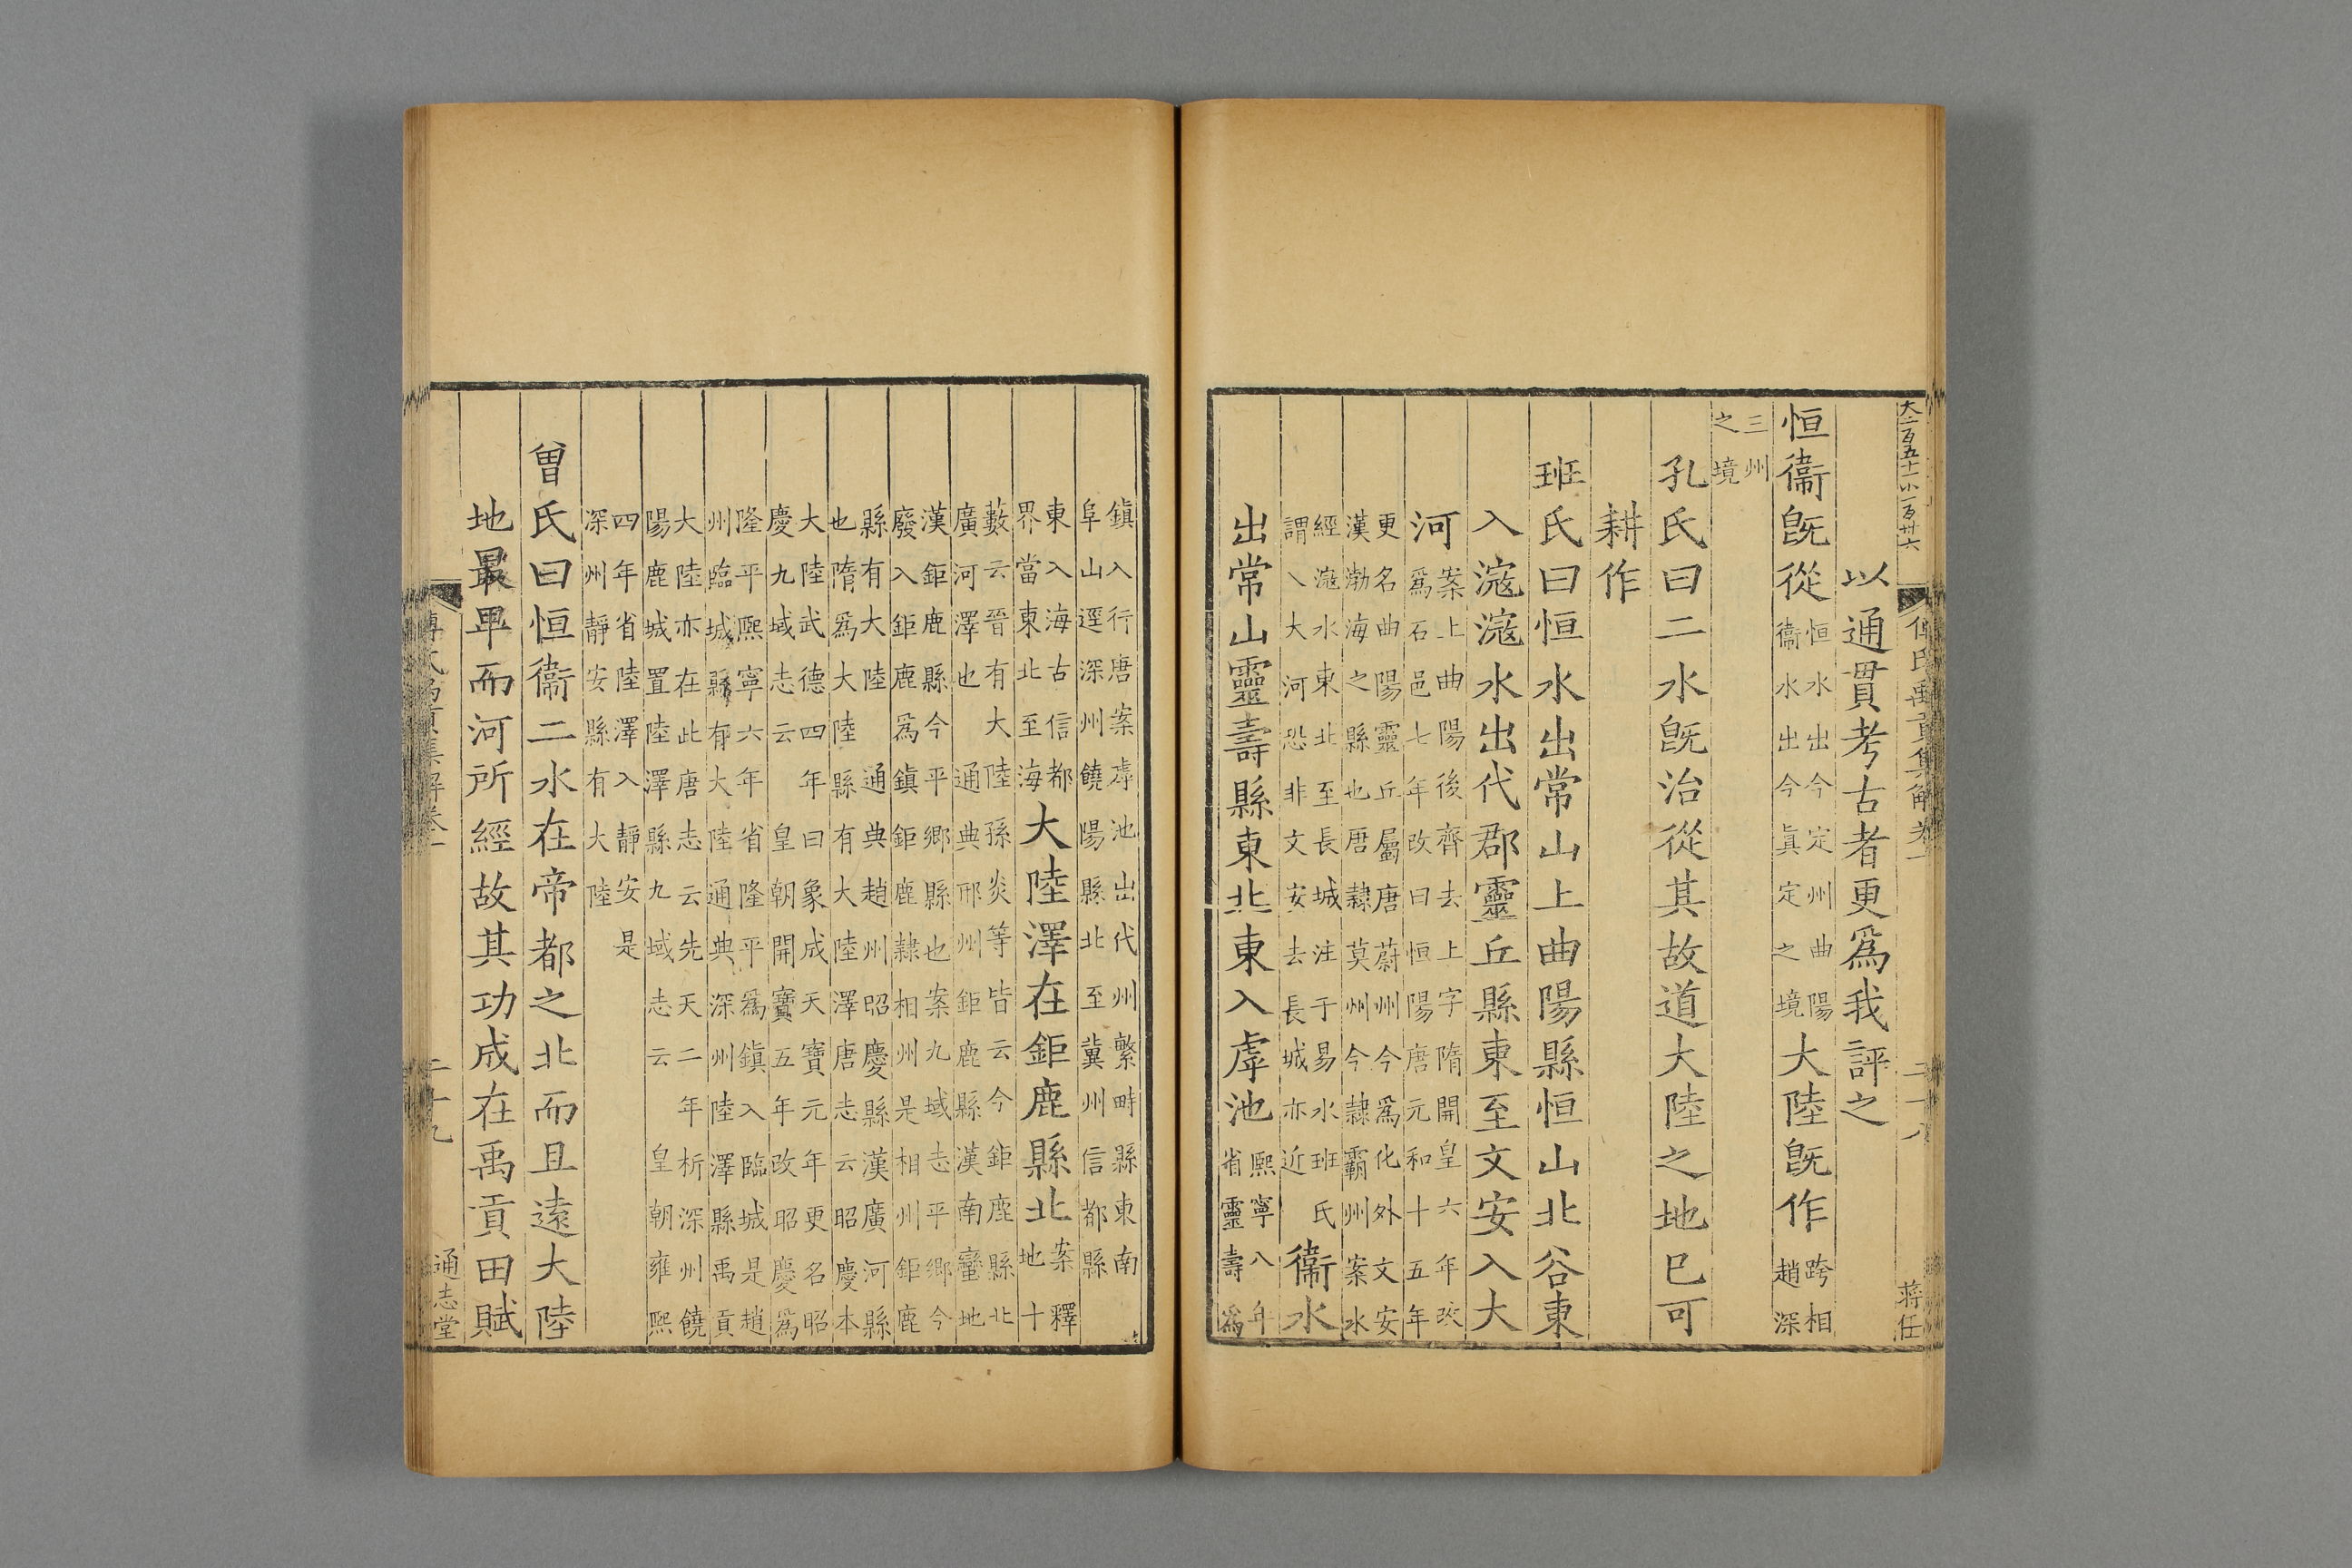 大二百五十一小一百卅六
傅氏禹貢集解卷一
二十八
蔣任
以通貫考古者更爲我評之
恒衞旣從恒水出今定州曲陽衞水出今眞定之境大陸旣作跨相趙深
三州之境
孔氏曰二水旣治從其故道大陸之地已可
耕作
班氏曰恒水出常山上曲陽縣恒山北谷東
入滱滱水出代郡靈丘縣東至文安入大
河案上曲陽後齊去上字隋開皇六年改爲石邑七年改曰恒陽唐元和十五年
更名曲陽靈丘屬唐蔚州今爲化外文安漢渤海之縣也唐隷莫州今隷霸州案水
經滱水東北至長城注于易水班氏謂入大河恐非文安去長城亦近衞水
出常山靈壽縣東北東入虖池熙寧八年省靈壽爲
鎮入行唐案虖池出代州繁畤縣東南阜山逕深州饒陽縣北至冀州信都縣
東入海古信都界當東北至海大陸澤在鉅鹿縣北案釋地十
藪云晉有大陸孫炎等皆云今鉅鹿縣北廣河澤也通典邢州鉅鹿縣漢南䜌地
漢鉅鹿縣今平鄉縣也案九域志平鄉今廢入鉅鹿爲鎮鉅鹿隷相州是相州鉅鹿
縣有大陸通典趙州昭慶縣漢廣河縣也隋爲大陸縣有大陸澤唐志云昭慶本
大陸武德四年曰象成天寶元年更名昭慶九域志云皇朝開寶五年改昭慶爲
隆平熙寧六年省隆平爲鎮入臨城是趙州臨城縣有大陸通典深州陸澤縣禹貢
大陸亦在此唐志云先天二年析深州饒陽鹿城置陸澤縣九域志云皇朝雍熙
四年省陸澤入靜安是深州靜安縣有大陸
曾氏曰恒衞二水在帝都之北而且遠大陸
地最卑而河所經故其功成在禹貢田賦
傅氏禹貢集解卷一
二十九
通志堂